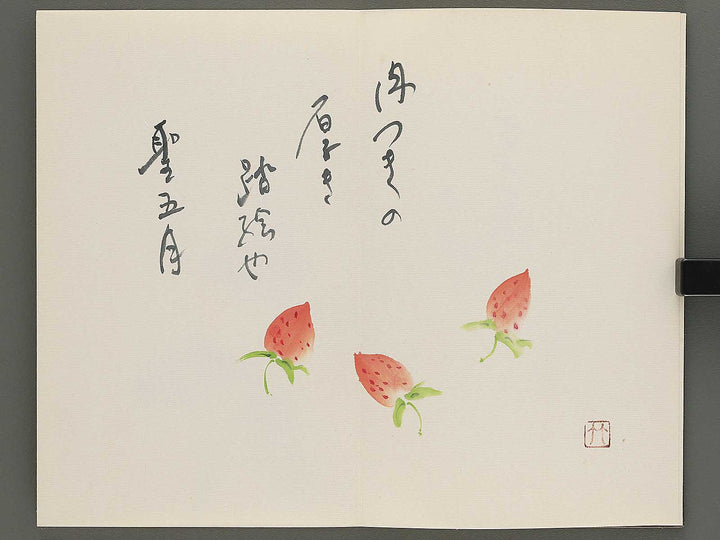 肉つきの
厚き
踏絵也
聖五月